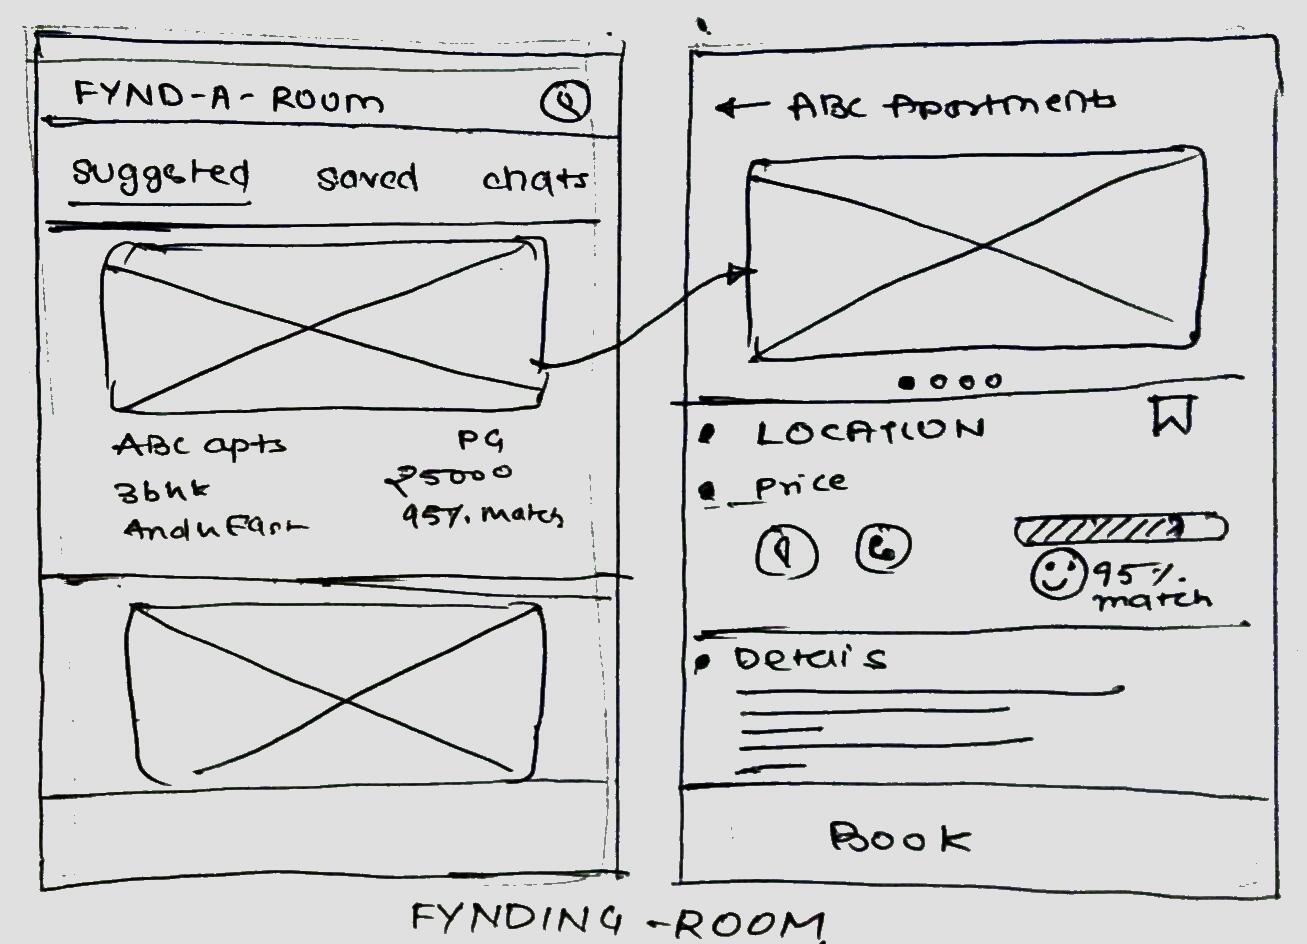 FYND-A-ROOM
suggested saved chats
ABC apts PG
3bhk ₹5000
Andh East 95% match
← ABC Apartments
LOCATION
Price
95%
match
Details
BOOK
FYNDING-ROOM